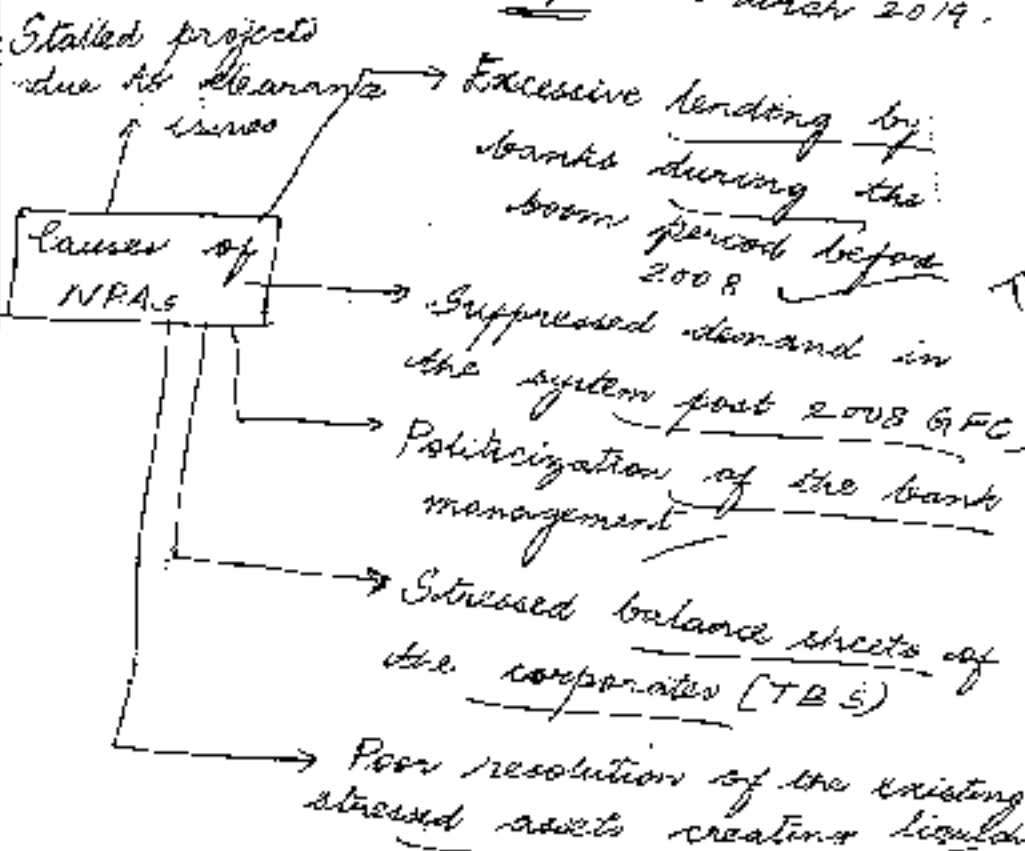 March 2019.
Stalled projects
due to clearance
issues
Excessive lending by
banks during the
boom period before
2008
Causes of
NPAs
Suppressed demand in
the system post 2008 GFC,
Politicization of the bank
management
Stressed balance sheets of
the corporates (TBS)
Poor resolution of the existing
stressed assets creating